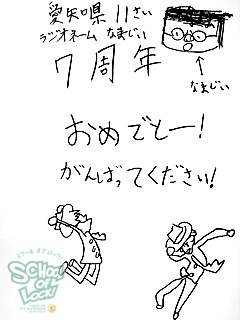 愛知県 11さい
ラジオネーム なまじい
なまじい
7周年
おめでとー!
がんばってください!
スクール オブ ロック!
SCHOOL OF LOCK!